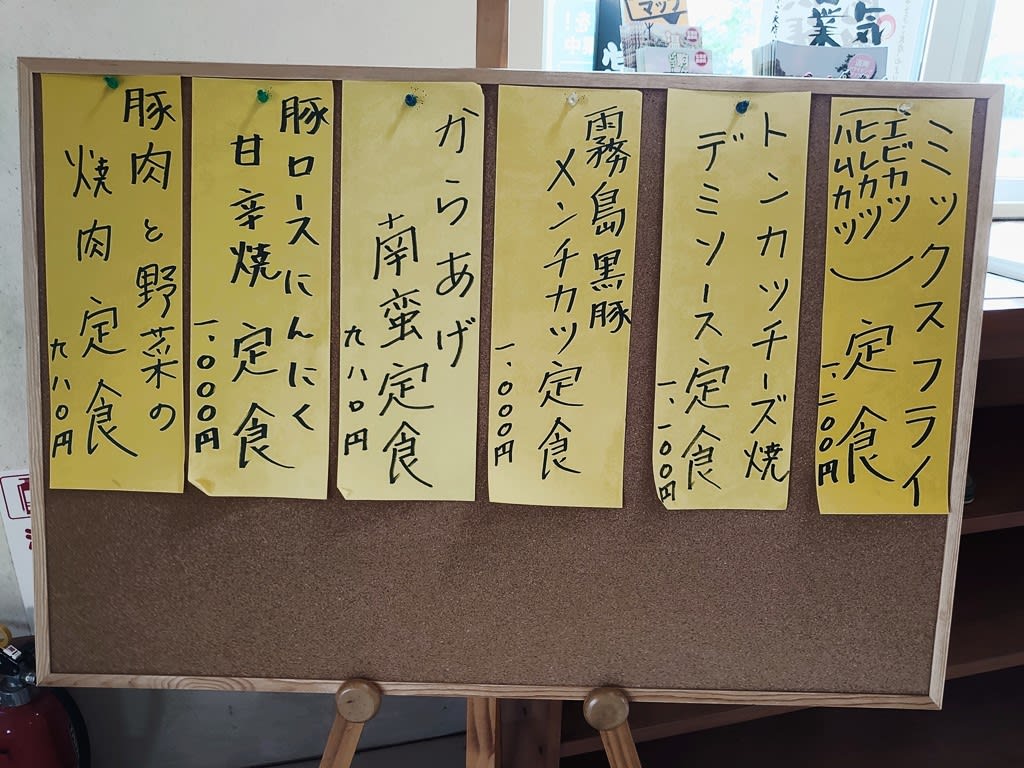 ミックスフライ
（エビカツ
ヒレカツ
ハムカツ）
定食
一、二〇〇円
トンカツチーズ焼
デミソース定食
一、一〇〇円
霧島黒豚
メンチカツ定食
一、〇〇〇円
からあげ
南蛮定食
九八〇円
豚ロースにんにく
甘辛焼定食
一、〇〇〇円
豚肉と野菜の
焼肉定食
九八〇円
マップ